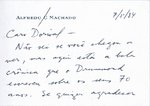 ALFREDO C MACHADO
Caro Dorival -
Não sei se você chegou a
ver, mas aqui está a bela
crônica que o Drummond
escreveu sobre os seus 70
anos. Se quiser agradecer